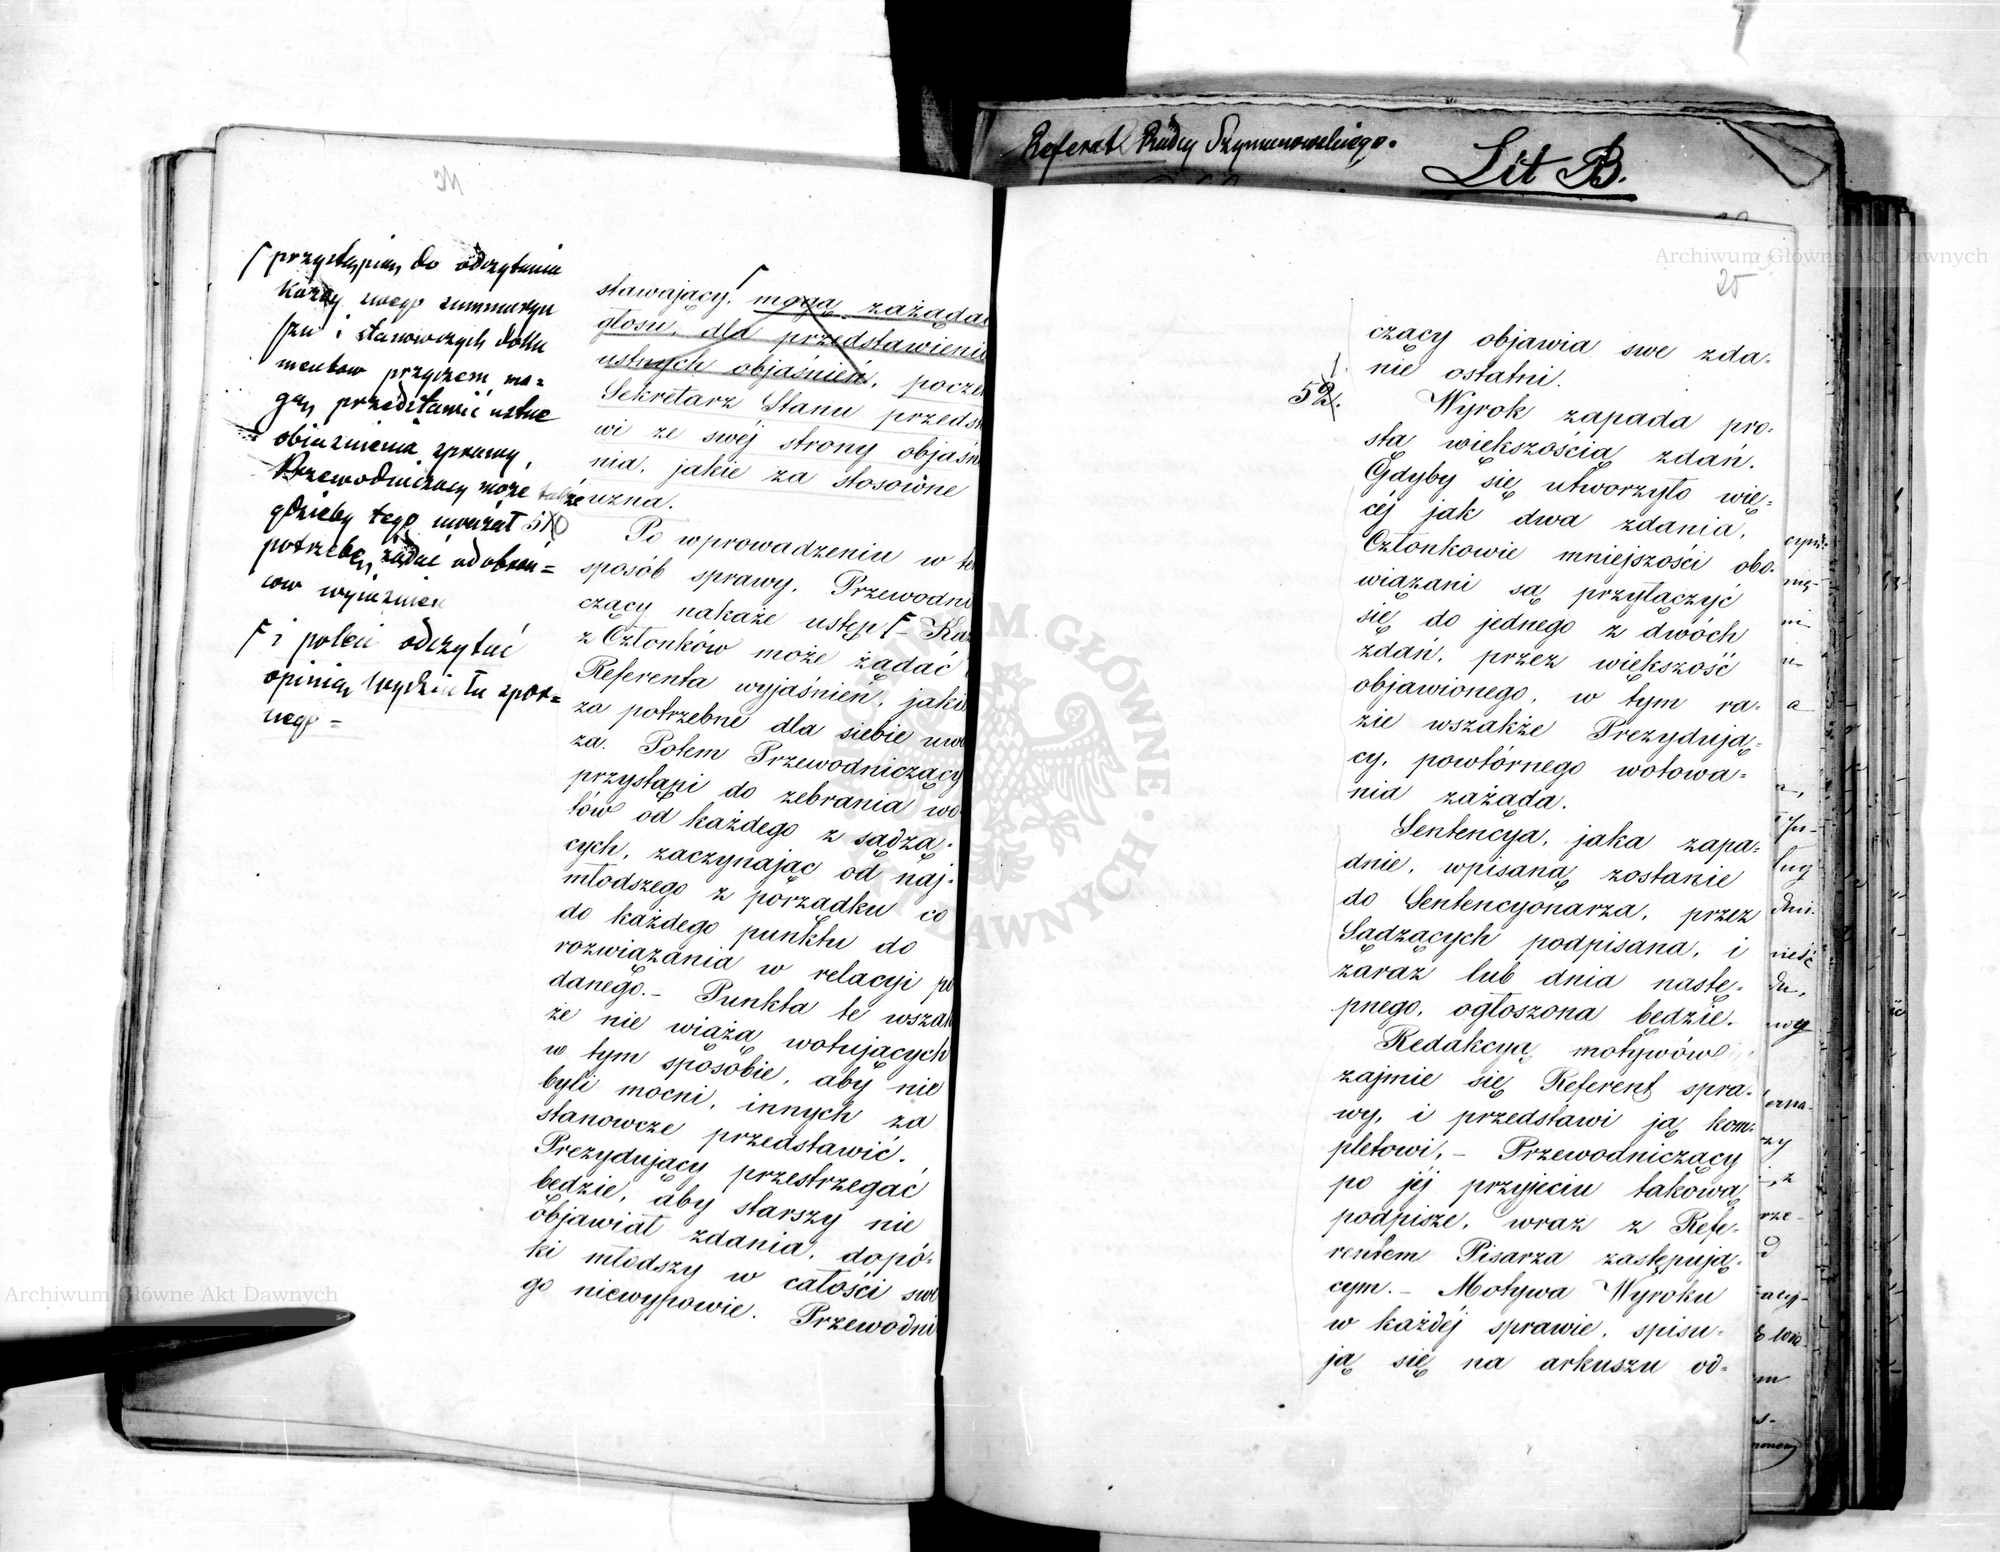 Referat Radcy Szymanowskiego.
Lit B.
Archiwum Główne Akt Dawnych
⌈ przystąpią do odczytania
każdy swego summaryu
szu i stanowczych doku
mentow przyczem mo-
gą przedstawić ustne
obiaśnienia sprawy,
Przewodniczący może także
gdzieby tego uważał
potrzebę, żądać od obroń=
ców wyiaśnień
⌈ i poleci odczytać
opinią Wydziału spor=
nego =
stawający, ⌈ mogą zażądać
głosu, dla przedstawienia
ustnych objaśnień, poczem
Sekretarz Stanu przedsta
wi ze swéj strony objaśnie
nia, jakie za stosowne
uzna.
510
Po wprowadzeniu w ten
sposób sprawy, Przewodni
czący nakaże ustęp ⌈ – Każdy
z Członków może żądać
Referenta wyjaśnień, jakie
za potrzebne dla siebie uwa
ża. Potem Przewodniczący
przystąpi do zebrania wo
tów od każdego z sądzą-
cych, zaczynając od naj-
młodszego z porządku co
do każdego punktu do
rozwiązania w relacyi po
danego. – Punkta te wszak
że nie wiążą wotujących
w tym sposobie, aby nie
byli mocni, innych za
stanowcze przedstawić.
Prezydujący przestrzegać
będzie, aby starszy nie
objawiał zdania, dopó-
ki młodszy w całości swe
go niewypowie. Przewodni
25
czący objawia swe zda-
nie ostatni.
1.
52.
Wyrok zapada pro-
stą większością zdań.
Gdyby się utworzyło wię-
céj jak dwa zdania,
Członkowie mniejszości obo-
wiązani są przyłączyć
się do jednego z dwóch
zdań, przez większość
objawionego, w tym ra-
zie wszakże Prezydują-
cy, powtórnego wotowa-
nia zażąda.
Sentencya, jaka zapa-
dnie, wpisaną zostanie
do Sentencyonarza, przez
Sądzących podpisana, i
zaraz lub dnia nastę-
pnego, ogłoszona będzie.
Redakcyą motywów
zajmie się Referent spra-
wy, i przedstawi ją kom-
pletowi, – Przewodniczący
po jéj przyjęciu takową
podpisze, wraz z Refe-
rentem Pisarza zastępują-
cym. – Motywa Wyroku
w każdéj sprawie, spisu-
ją się na arkuszu od-
ARCHIWUM GŁÓWNE AKT DAWNYCH
Archiwum Główne Akt Dawnych